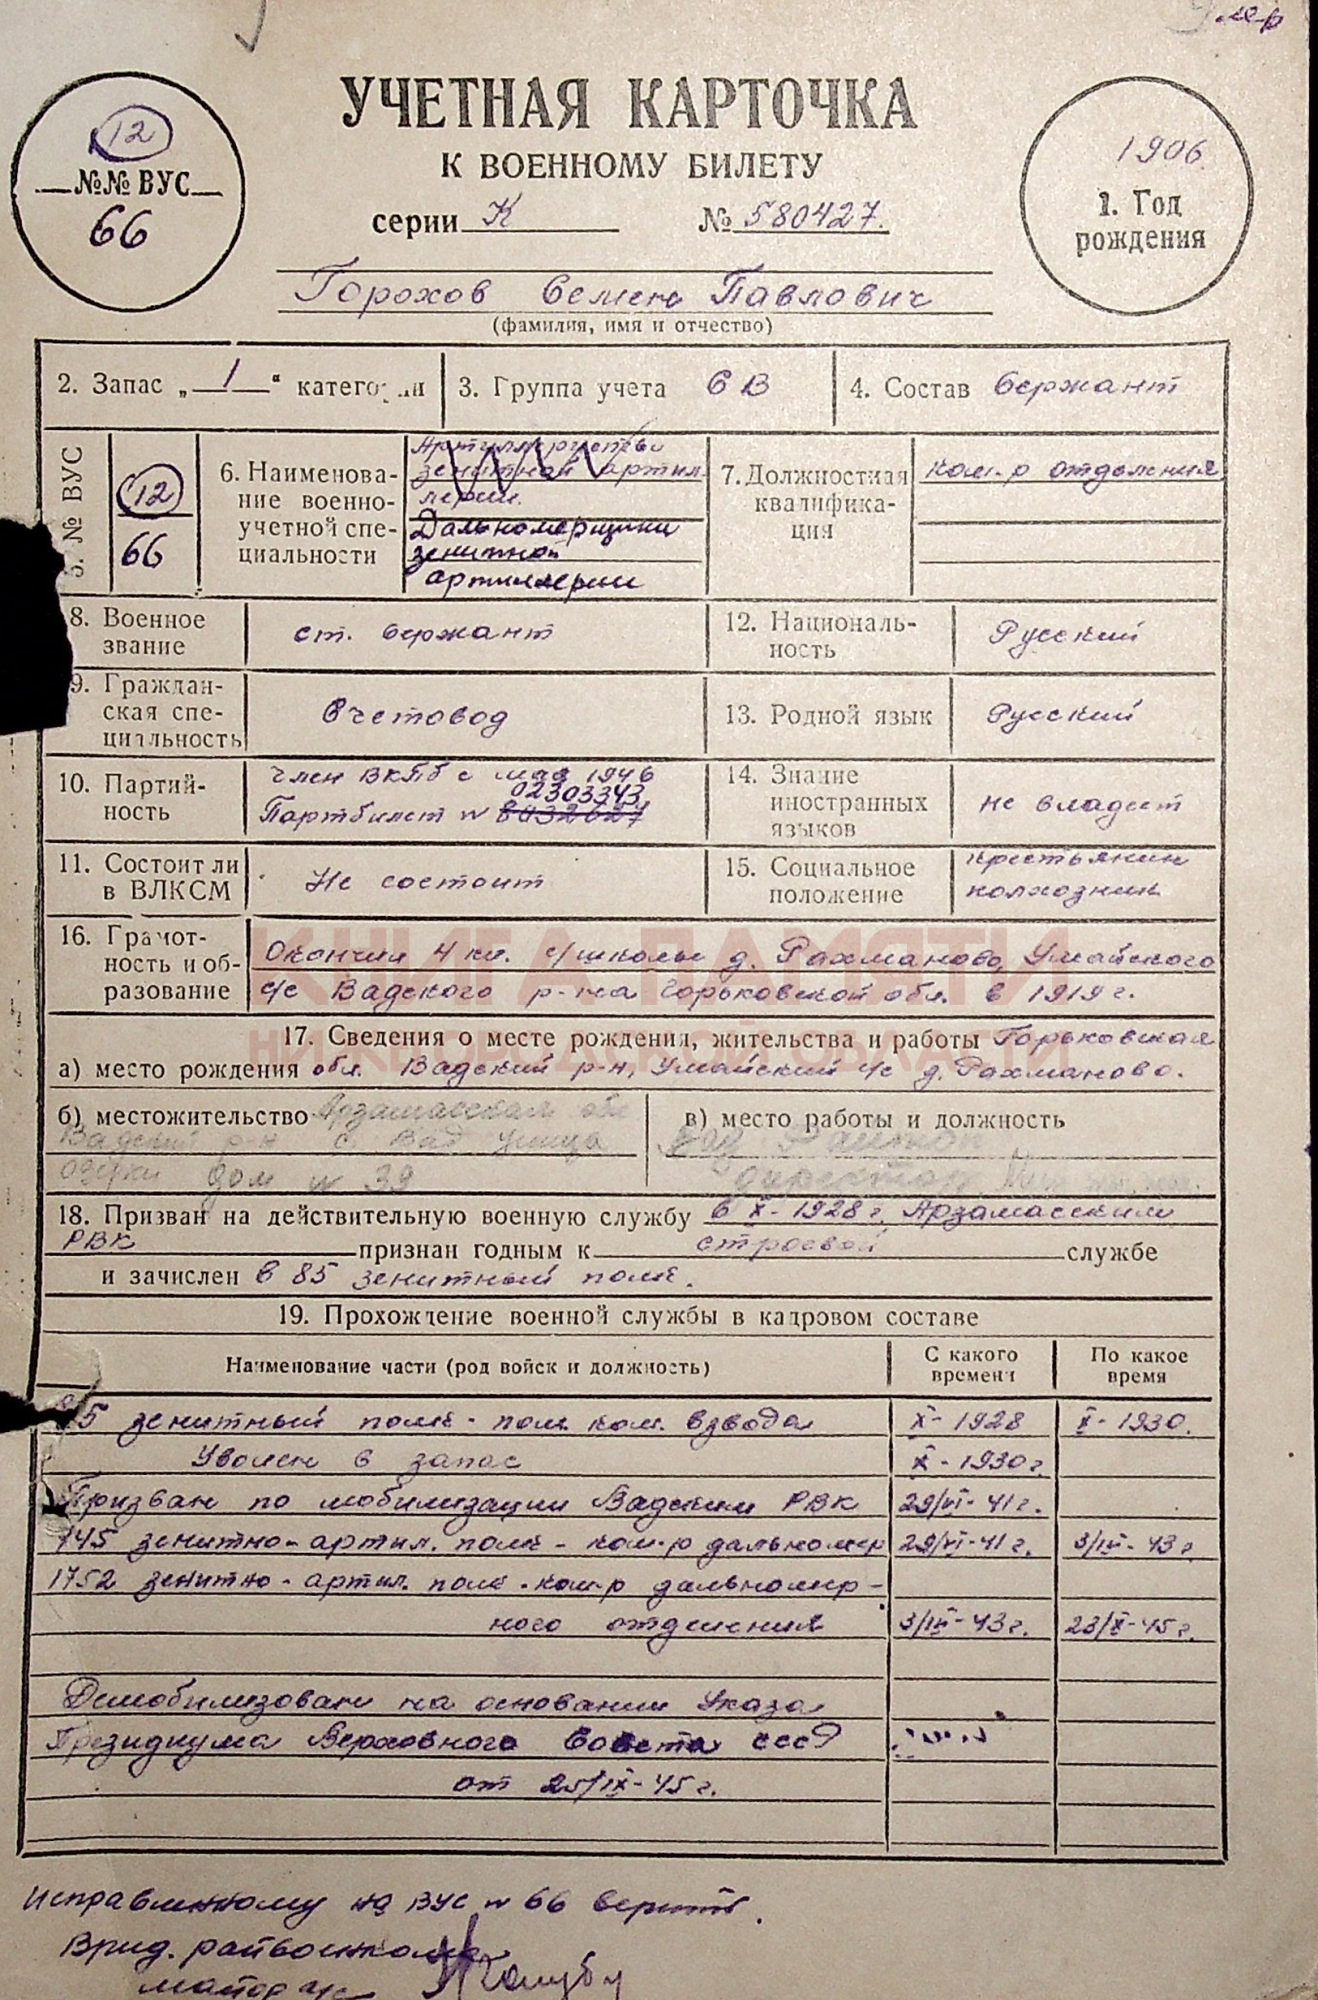 Умер
12
№№ ВУС
66
УЧЕТНАЯ КАРТОЧКА
К ВОЕННОМУ БИЛЕТУ
серии К № 580427.
1906
1. Год
рождения
Горохов Семен Павлович
(фамилия, имя и отчество)
2. Запас „ 1 “ категории
3. Группа учета 6 В
4. Состав Сержант
5. № ВУС
12
66
6. Наименова-
ние военно-
учетной спе-
циальности
зенитной артил
лерии.
Дальномерщики
зенитной
артиллерии
7. Должностная
квалифика-
ция
ком-р отделения
8. Военное
звание
ст. Сержант
12. Националь-
ность
Русский
9. Граждан-
ская спе-
циальность
Счетовод
13. Родной язык
Русский
10. Партий-
ность
член ВКПб с мая 1946
02303343
Партбилет №
14. Знание
иностранных
языков
не владеет
11. Состоит ли
в ВЛКСМ
Не состоит
15. Социальное
положение
крестьянин
колхозник
16. Грамот-
ность и об-
разование
Окончил 4 кл. с/школы д. Рахманово, Умайского
с/с Вадского р-на Горьковской обл. в 1919 г.
КНИГА ПАМЯТИ
НИЖЕГОРОДСКОЙ ОБЛАСТИ
17. Сведения о месте рождения, жительства и работы Горьковская
а) место рождения обл. Вадский р-н, Умайский с/с д. Рахманово.
б) местожительство Арзамасская обл
Вадский р-н с. Вад улица
дом № 39
в) место работы и должность
директор
18. Призван на действительную военную службу 6 X-1928 г. Арзамасским
РВК признан годным к строевой службе
и зачислен в 85 зенитный полк.
19. Прохождение военной службы в кадровом составе
Наименование части (род войск и должность)
С какого
времени
По какое
время
85 зенитный полк - пом. ком. взвода X-1928 X-1930.
Уволен в запас X-1930 г.
Призван по мобилизации Вадским РВК 29/VI-41 г.
745 зенитно-артил. полк - ком-р дальномер 29/VI-41 г. 3/III-43 г
1752 зенитно-артил. полк - ком-р дальномер-
ного отделения 3/III-43 г. 23/X-45 г.
Демобилизован на основании Указа
Президиума Верховного Совета СССР
от 25/IX-45 г.
Исправленному на ВУС № 66 верить.
Врид. райвоенкома
майор а/с